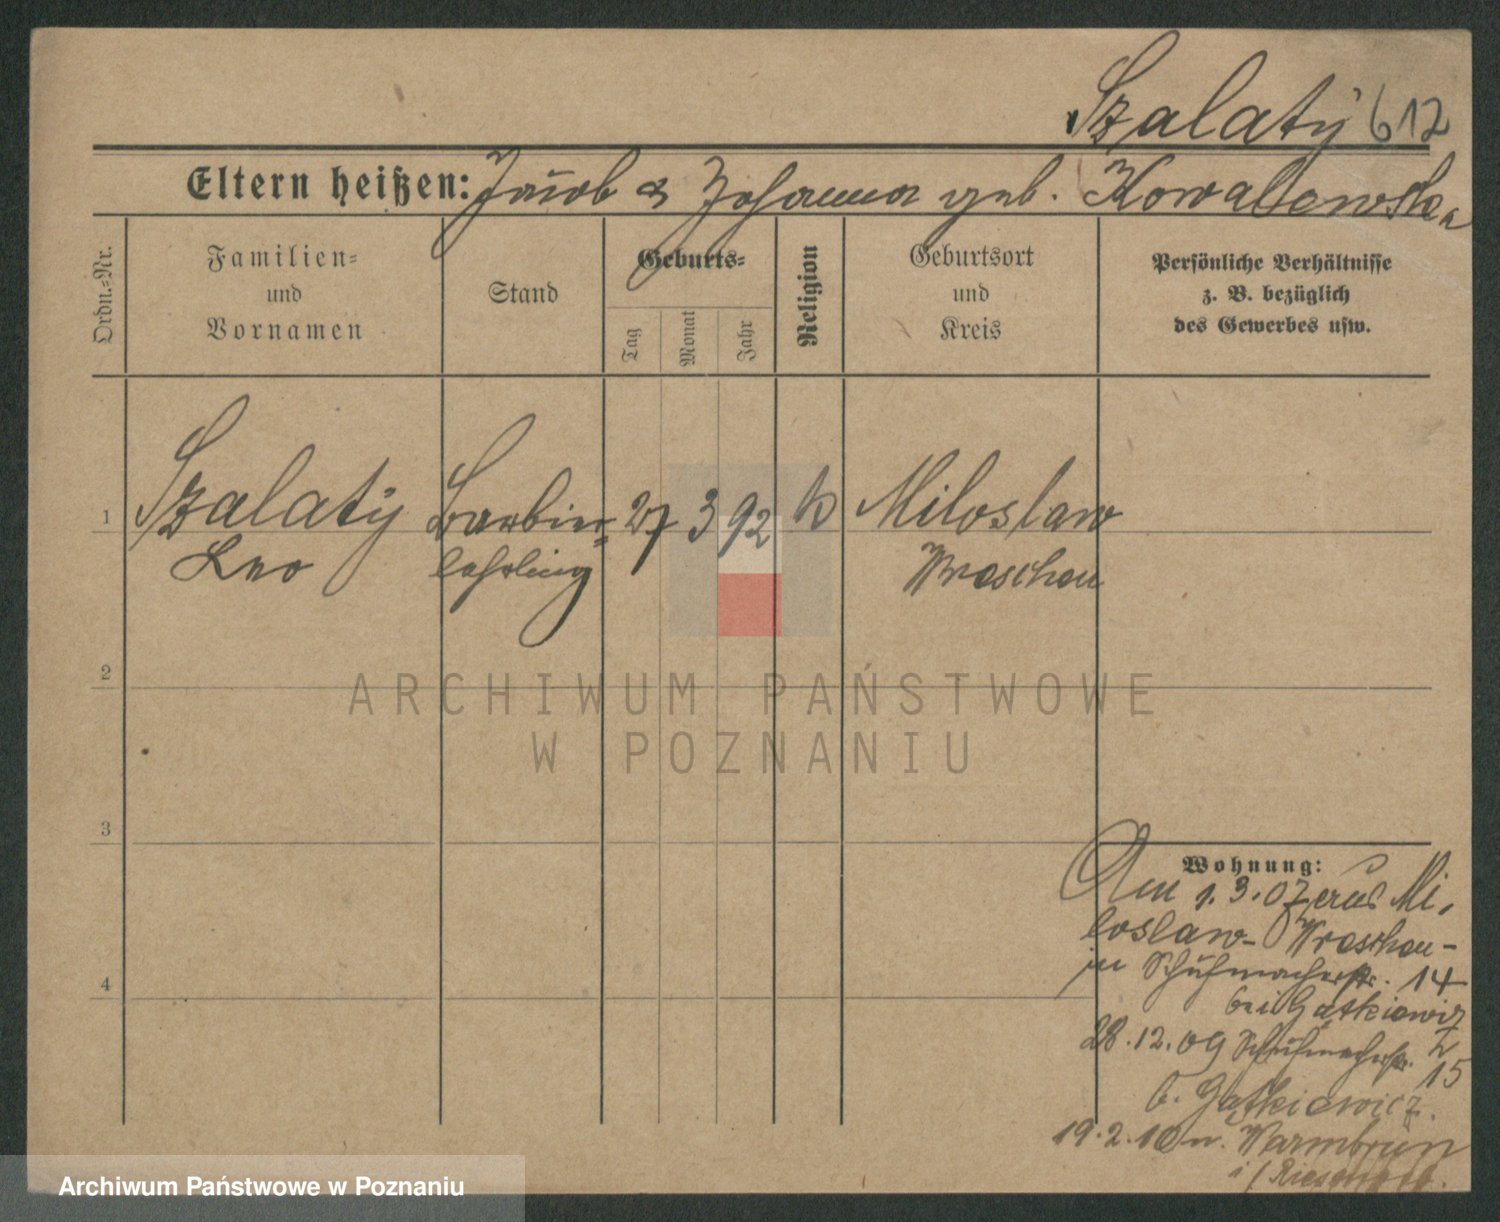 Szalaty 612
Eltern heißen: Jacob & Johanna geb. Kowalewska
Ordn.-Nr.
Familien- und Vornamen
Stand
Geburts-
Tag
Monat
Jahr
Religion
Geburtsort und Kreis
Persönliche Verhältnisse
z. B. bezüglich
des Gewerbes usw.
1 Szalaty Barbier- 27 3 92 k Miloslaw
Leo lehrling Wreschen
2
3
4
Wohnung:
Am 1.3.07 aus Mi-
loslaw- Wreschen-
in Schuhmacherstr. 14
bei Gątkiewicz
28.12.09 Schuhmacherstr. 15
b. Gątkiewicz.
19.2.10 n. Warmbrun
i/
ARCHIWUM PAŃSTWOWE
W POZNANIU
Archiwum Państwowe w Poznaniu